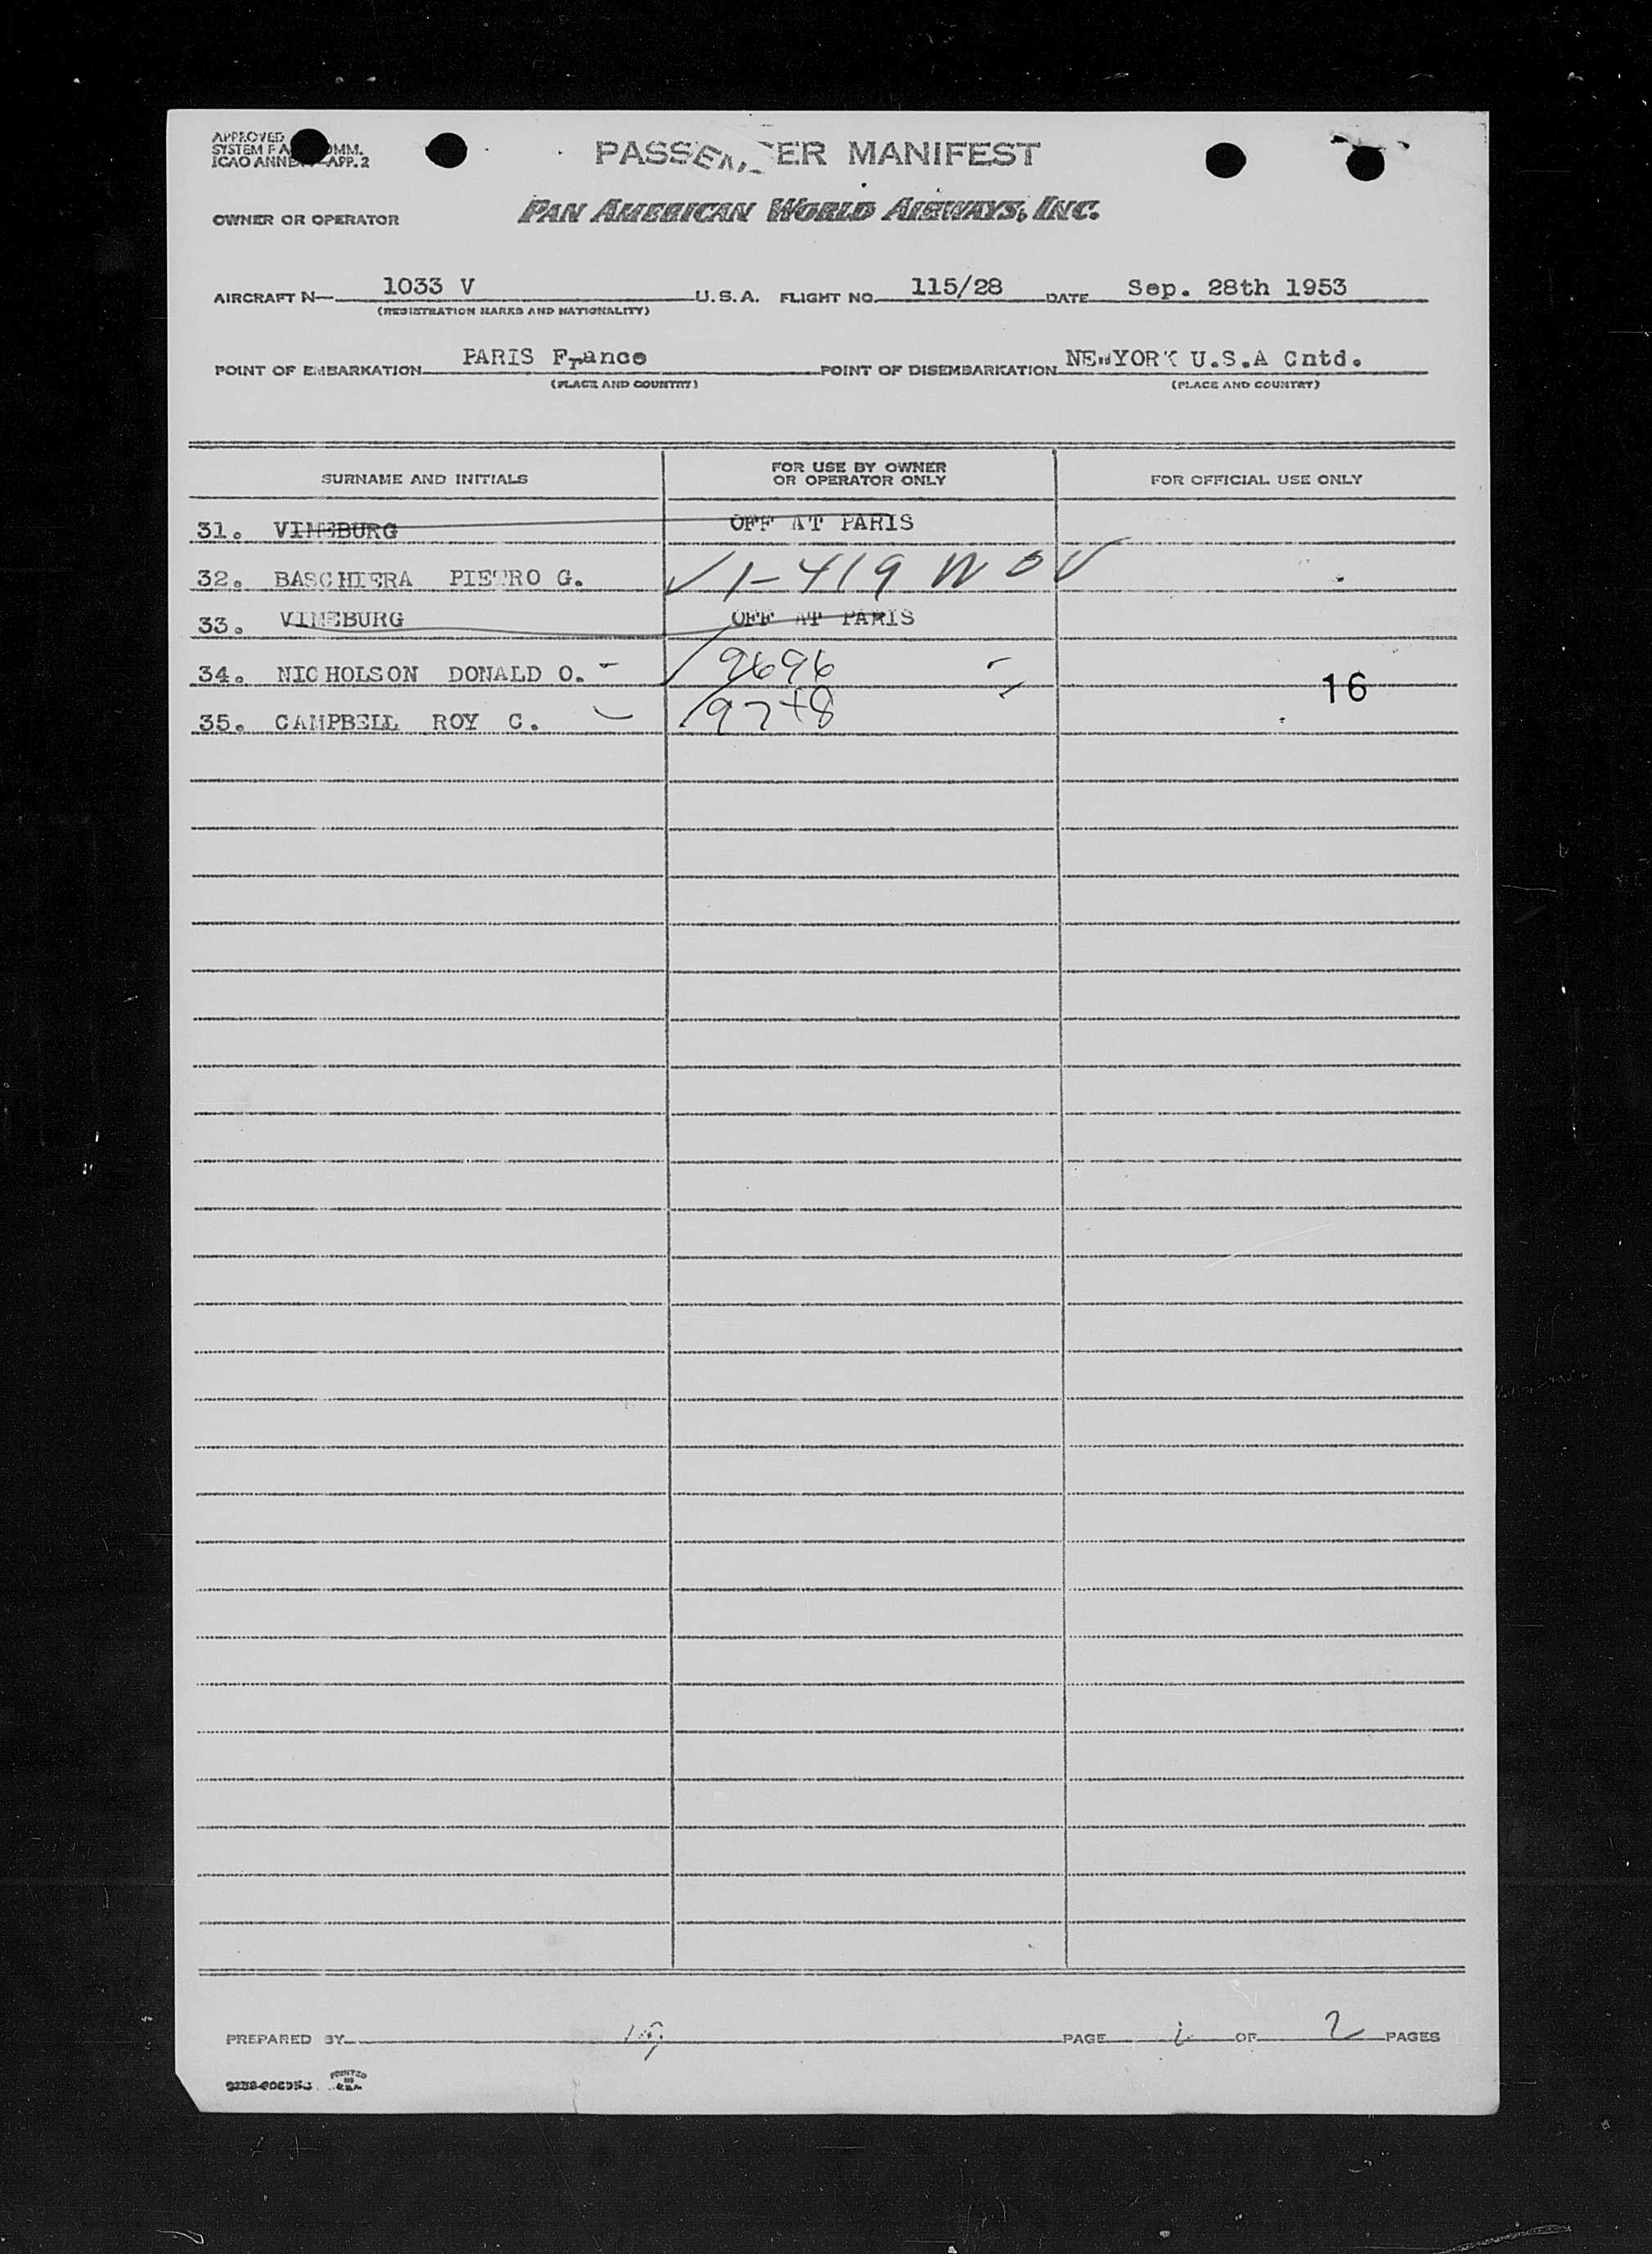 APPROVED
SYSTEM
ICAO APP. 2
PASSENGER MANIFEST
OWNER OR OPERATOR PAN AMERICAN WORLD AIRWAYS, INC.
AIRCRAFT N— 1033 V U.S.A. FLIGHT NO. 115/28 DATE Sep. 28th 1953
(REGISTRATION MARKS AND NATIONALITY)
POINT OF EMBARKATION PARIS France POINT OF DISEMBARKATION NEWYORK U.S.A Cntd.
(PLACE AND COUNTRY) (PLACE AND COUNTRY)
SURNAME AND INITIALS FOR USE BY OWNER OR OPERATOR ONLY FOR OFFICIAL USE ONLY
31. VINEBURG OFF AT PARIS
32. BASCHIERA PIETRO G. 1-419
33. VINEBURG OFF AT PARIS
34. NICHOLSON DONALD O. 9696
16
35. CAMPBELL ROY C. 97+8
PREPARED BY PAGE OF 2 PAGES
PRINTED
IN
U.S.A.